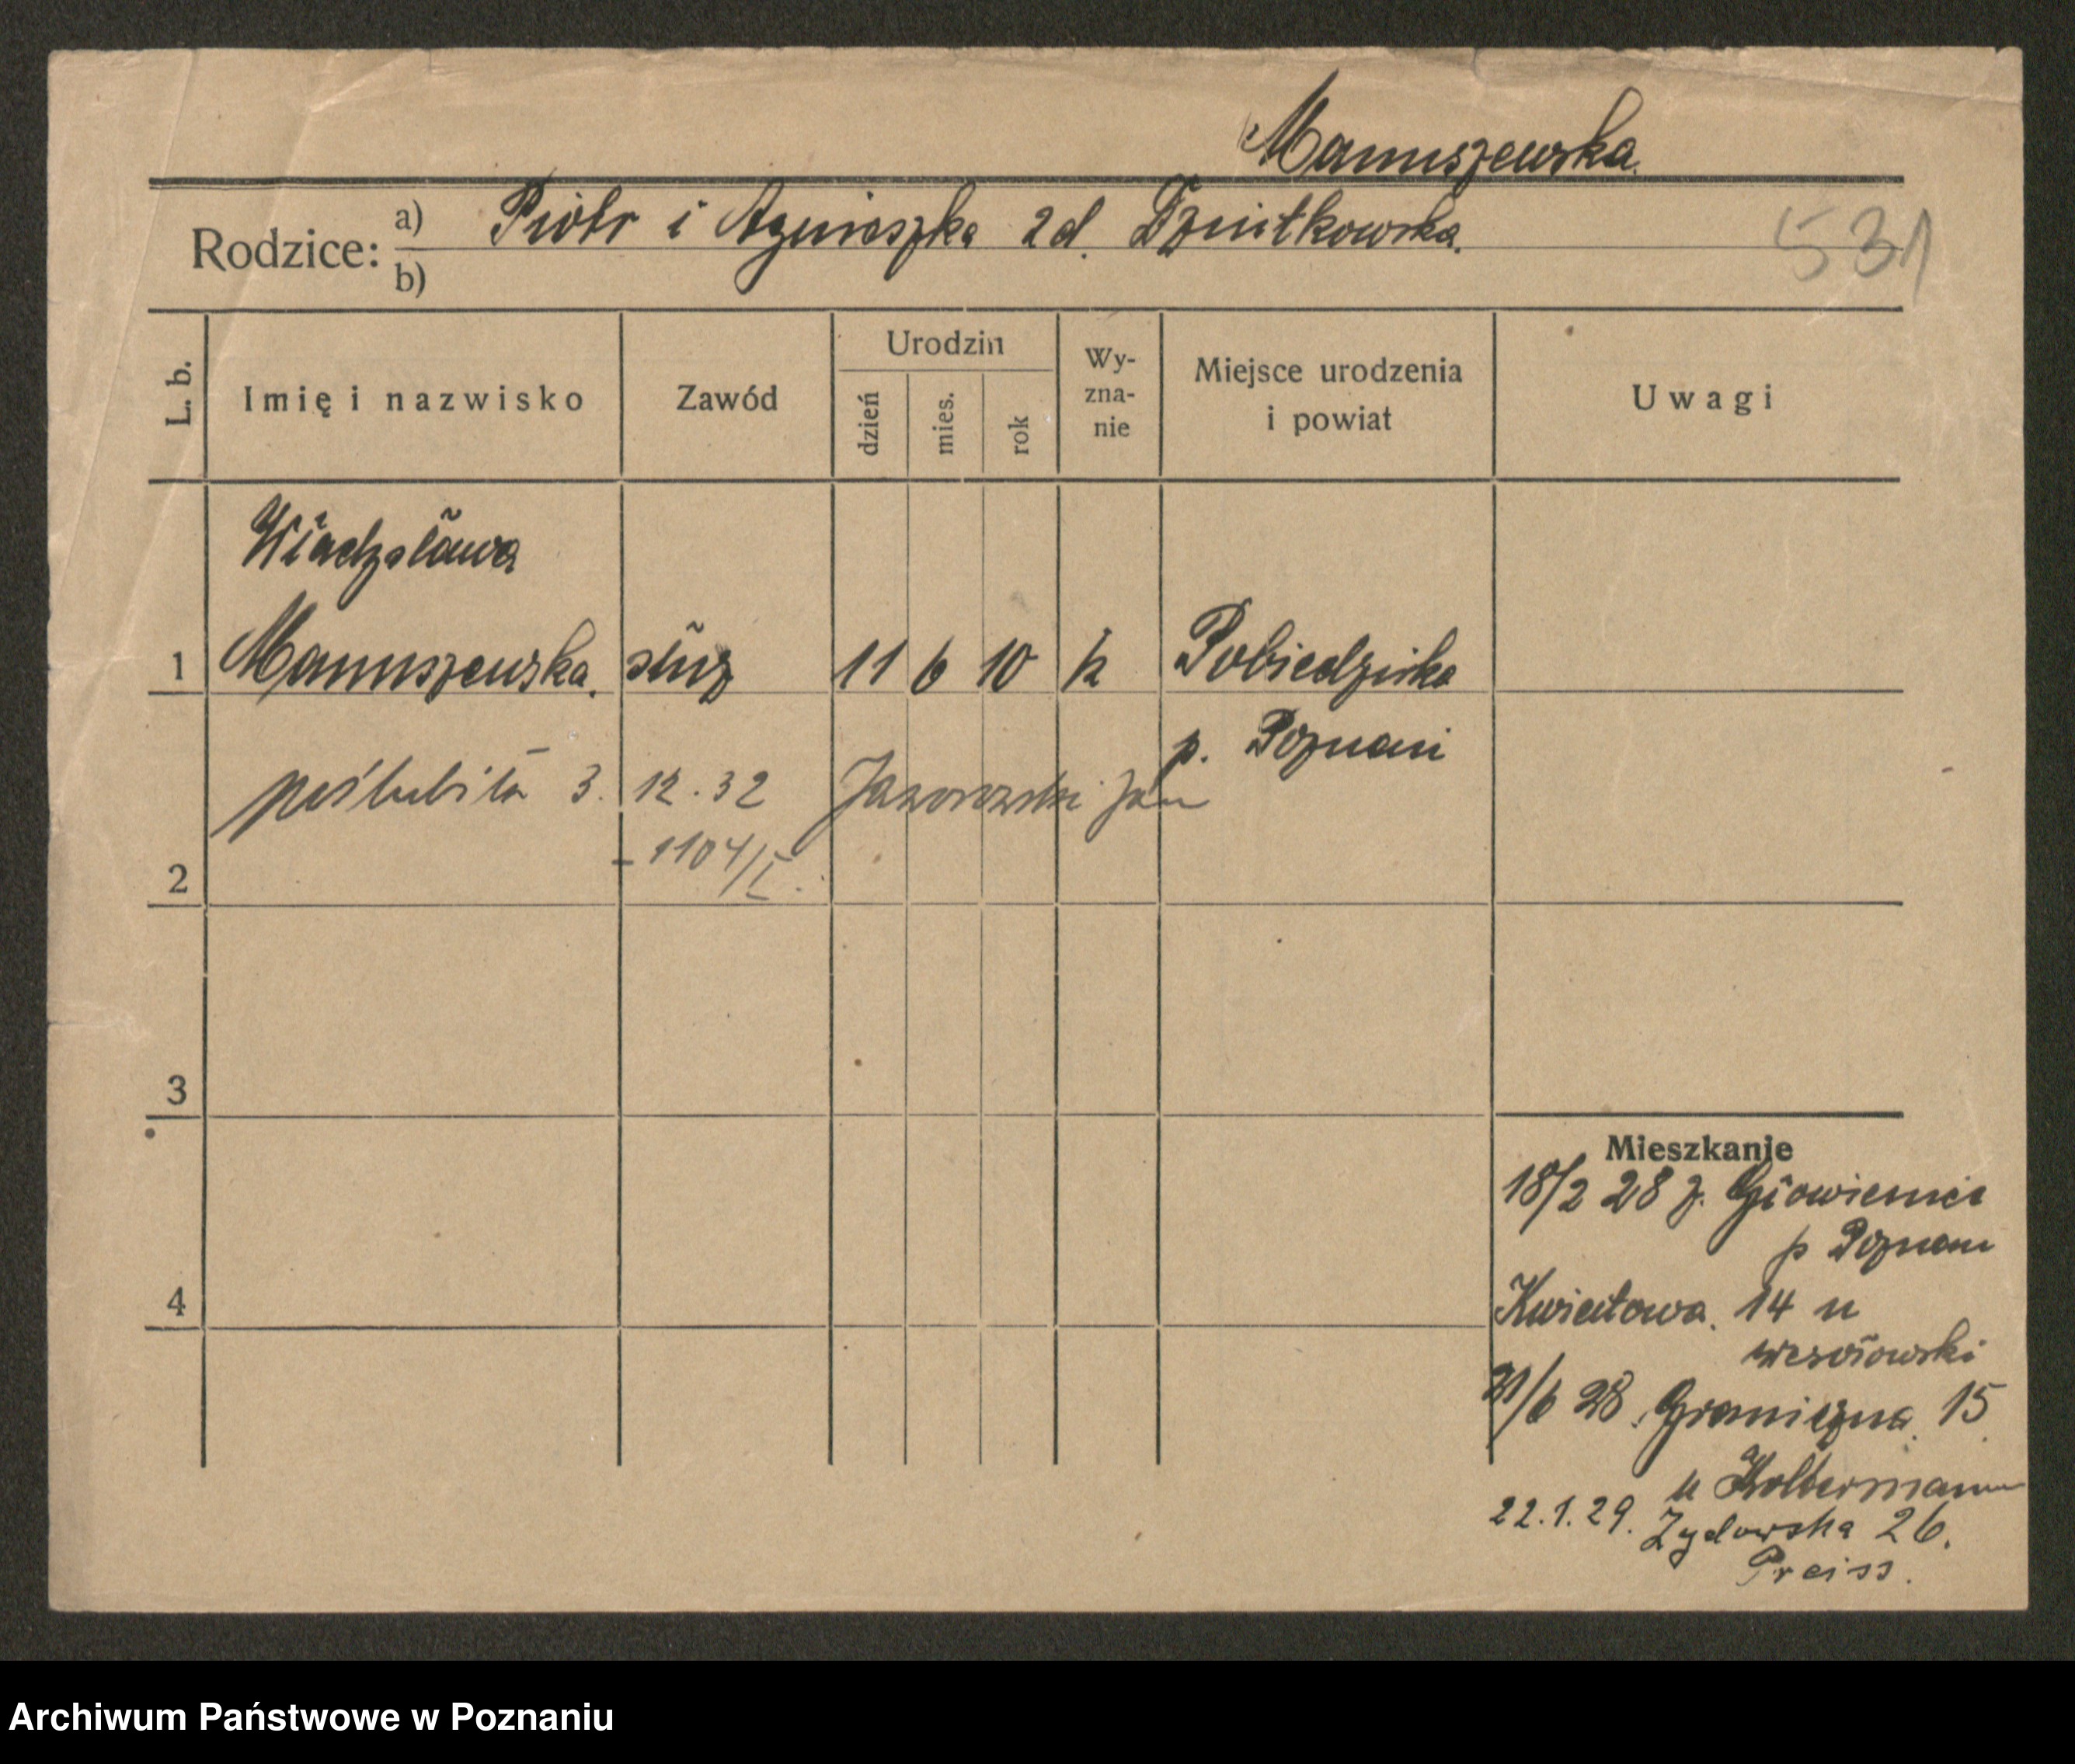 Manuszewska.
Rodzice: a) Piotr i Agnieszka zd.
531
b)
L. b.
Imię i nazwisko
Zawód
Urodzin
dzień
mies.
rok
Wy-
zna-
nie
Miejsce urodzenia
i powiat
Uwagi
Władysława
1 Manuszewska. służ 11 6 10 k Pobiedziska
p. Poznań
poślubiła 3.12.32 Jaworowski Jan
- 1104/I.
2
3
4
Mieszkanie
18/2 28 z.
p Poznań
Kwiatowa. 14 u
Wesołowski
/6 28. Graniczna. 15
u
22.1.29. Żydowska 26.
Preiss.
Archiwum Państwowe w Poznaniu